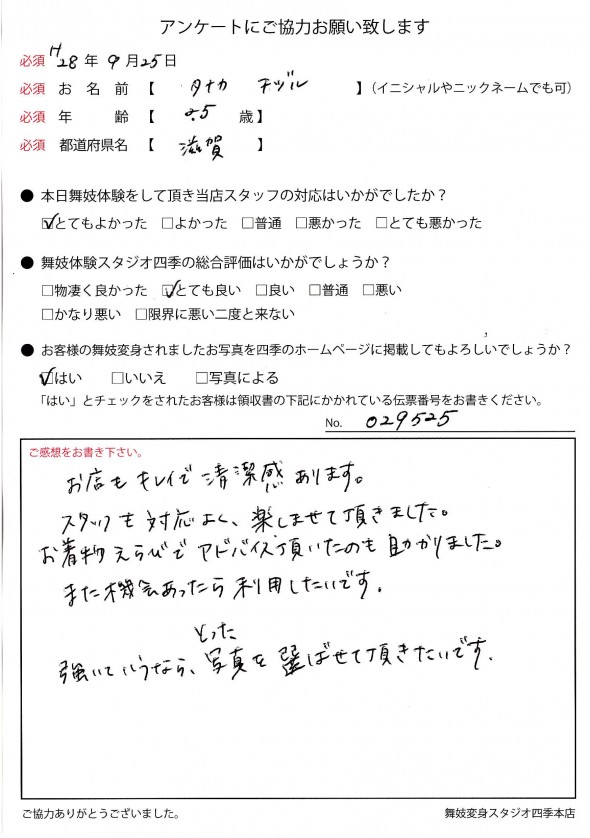 アンケートにご協力お願い致します
必須 H28年9月25日
必須 お名前【 タナカ チヅル 】(イニシャルやニックネームでも可)
必須 年齢【 25 歳】
必須 都道府県名【 滋賀 】
● 本日舞妓体験をして頂き当店スタッフの対応はいかがでしたか?
☑とてもよかった □よかった □普通 □悪かった □とても悪かった
● 舞妓体験スタジオ四季の総合評価はいかがでしょうか?
□物凄く良かった ☑とても良い □良い □普通 □悪い
□かなり悪い □限界に悪い二度と来ない
● お客様の舞妓変身されましたお写真を四季のホームページに掲載してもよろしいでしょうか?
☑はい □いいえ □写真による
「はい」とチェックをされたお客様は領収書の下記にかかれている伝票番号をお書きください。
No. 029525
ご感想をお書き下さい。
お店もキレイで清潔感あります。
スタッフも対応よく、楽しませて頂きました。
お着物えらびでアドバイス頂いたのも助かりました。
また機会あったら利用したいです。
とった
強いていうなら、写真を選ばせて頂きたいです。
ご協力ありがとうございました。
舞妓変身スタジオ四季本店